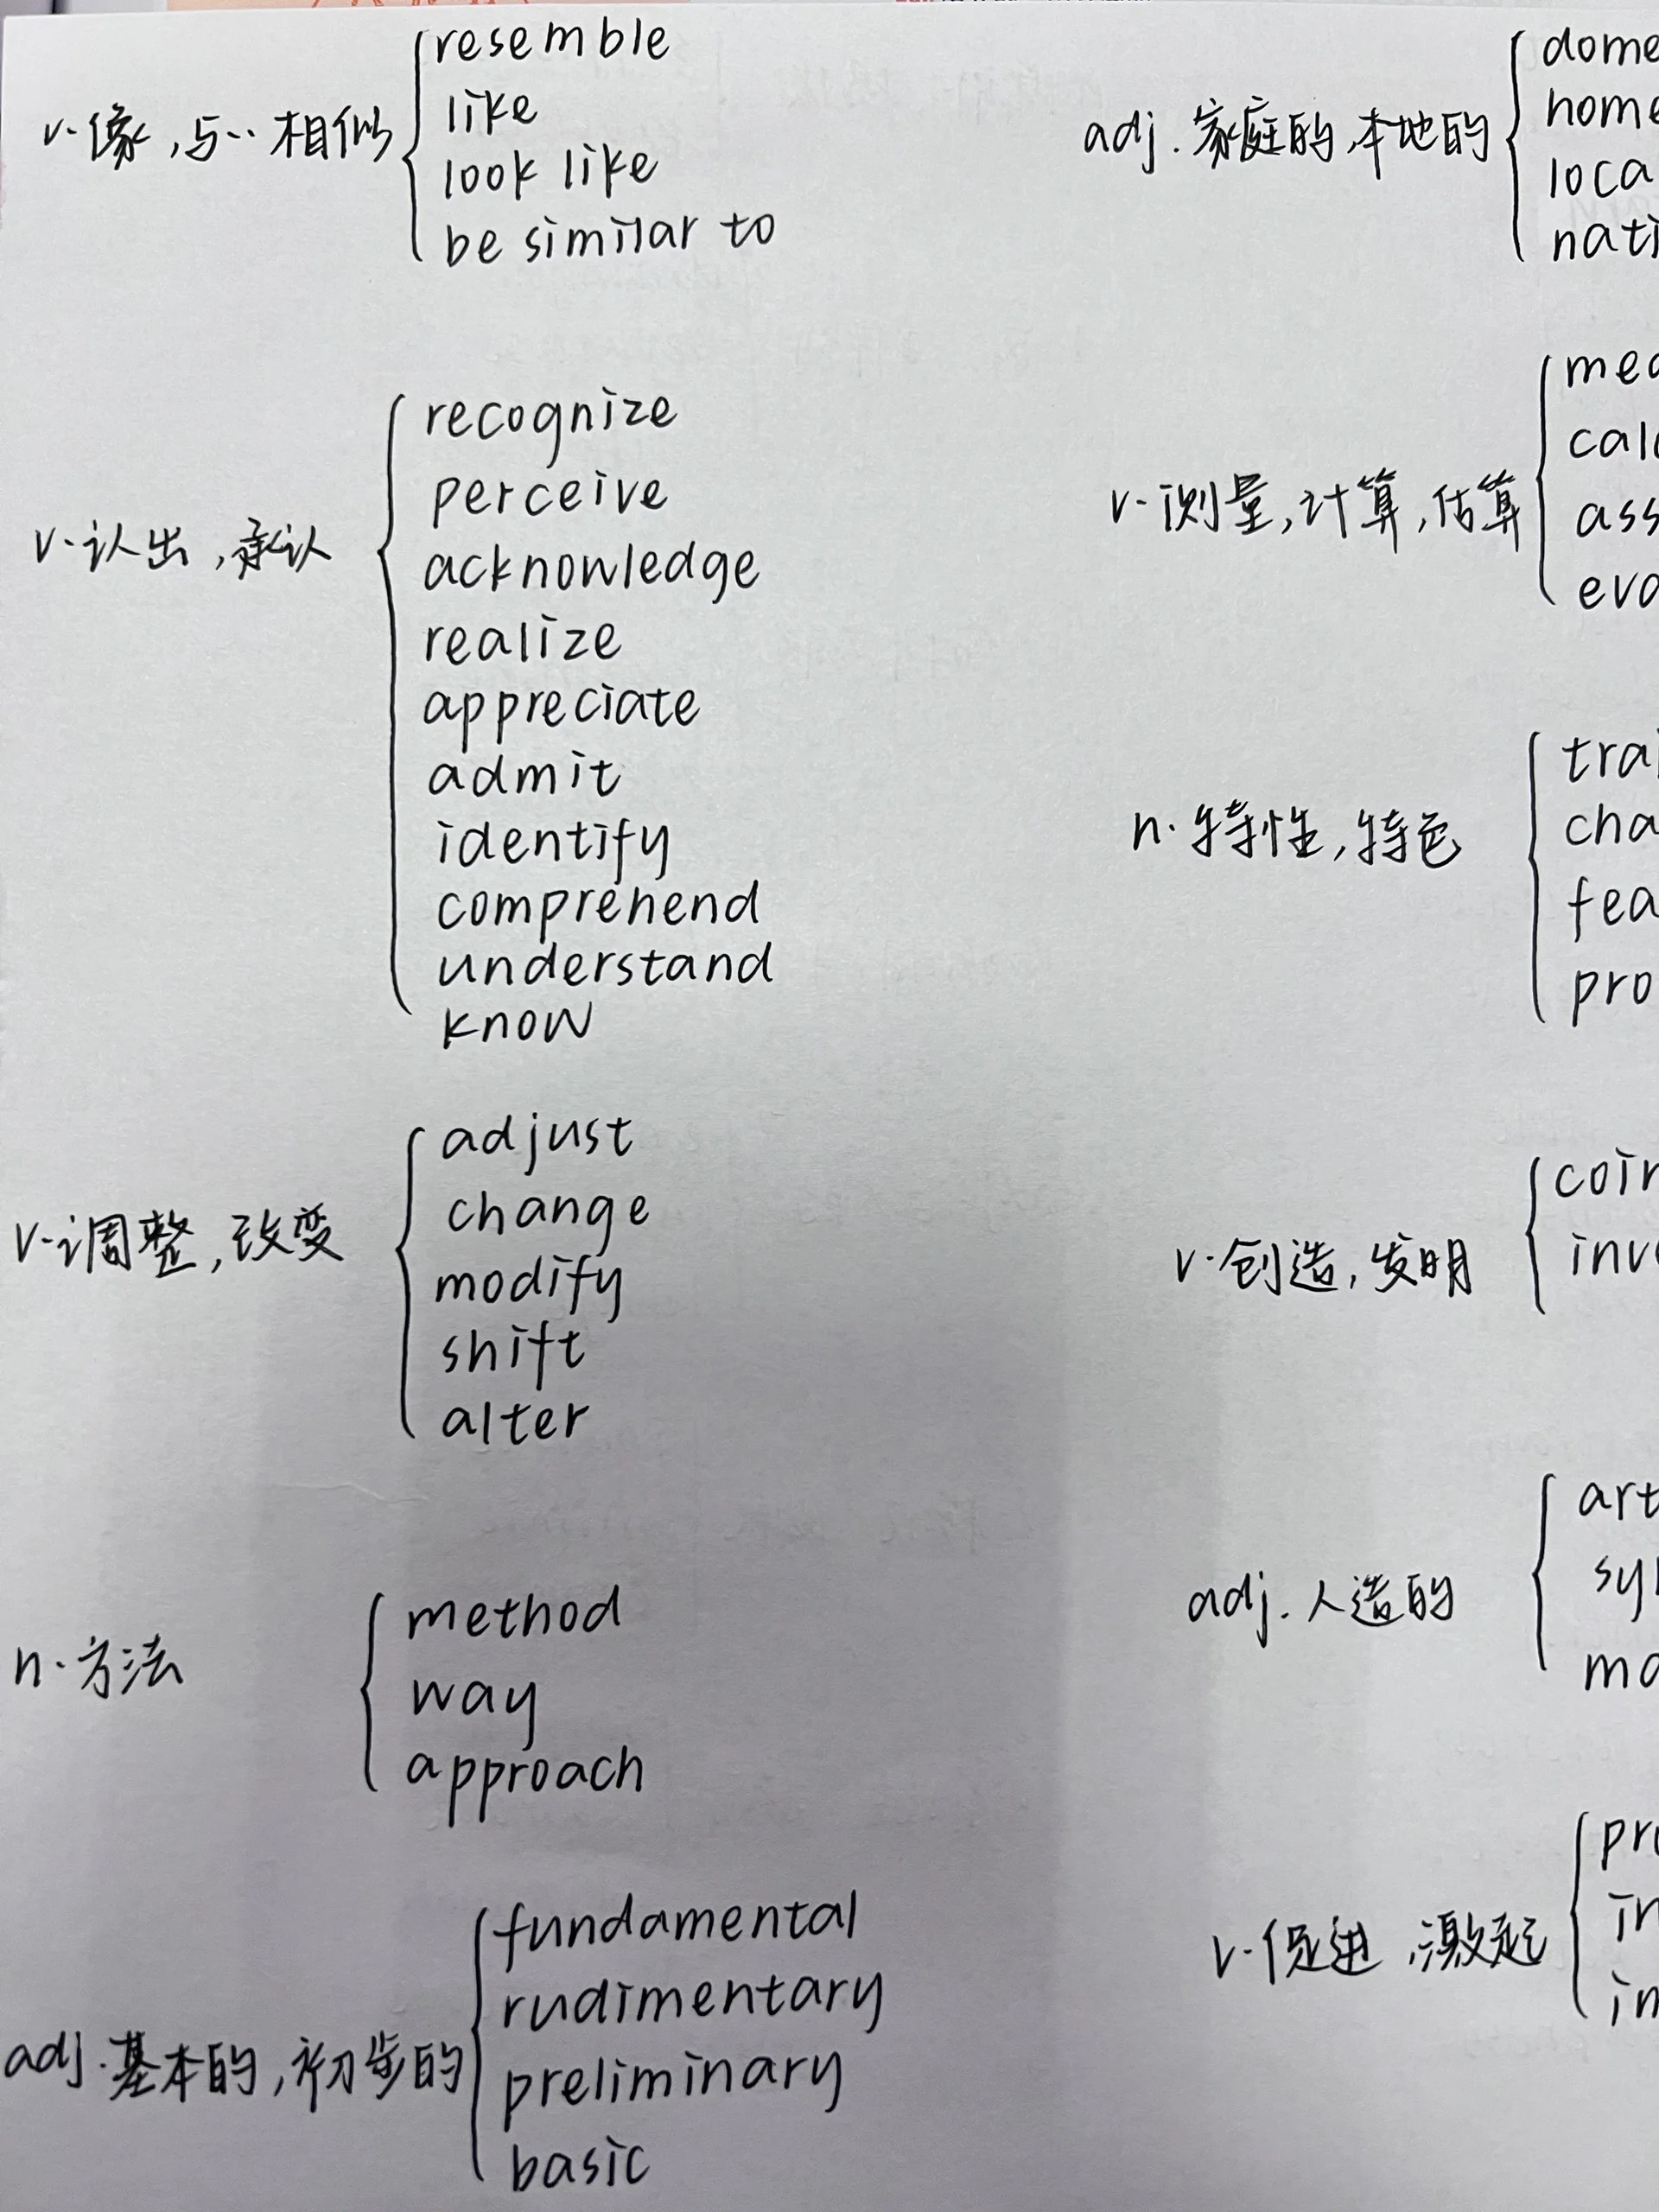 v. 像,与..相似
resemble
like
look like
be similar to
v. 认出,承认
recognize
perceive
acknowledge
realize
appreciate
admit
identify
comprehend
understand
know
v. 调整,改变
adjust
change
modify
shift
alter
n. 方法
method
way
approach
adj. 基本的,初步的
fundamental
rudimentary
preliminary
basic
adj. 家庭的,本地的
v. 测量,计算,估算
n. 特性,特色
v. 创造,发明
adj. 人造的
v. 促进,激起